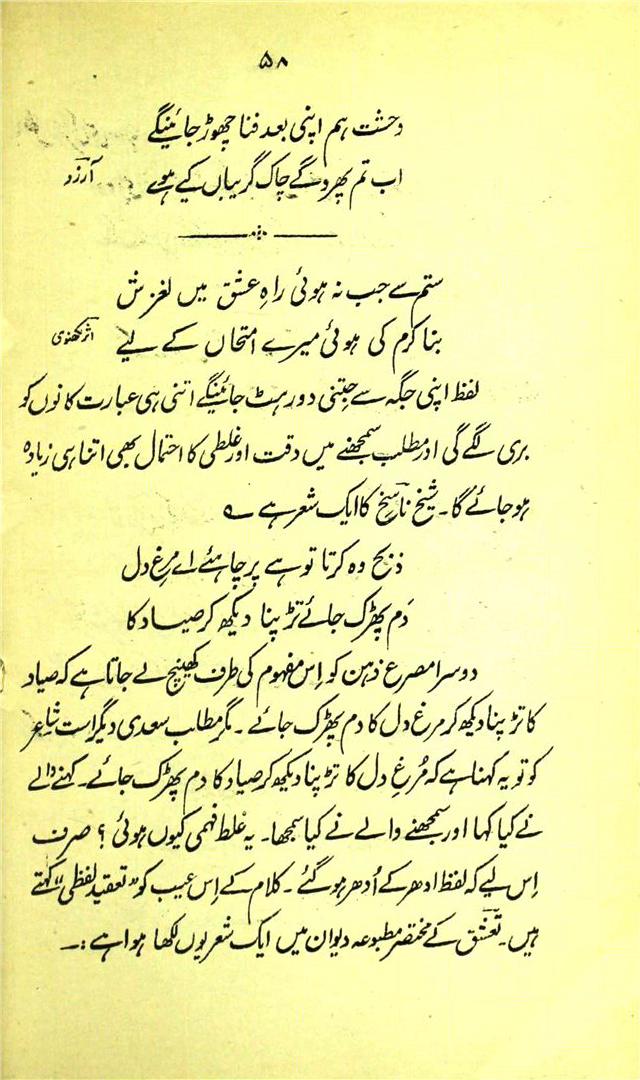 ۵۸
وحشت ہم اپنی بعد فنا چھوڑ جائینگے
اب تم پھرو گے چاک گریباں کیے ہوے آرزو
ستم سے جب نہ ہوئی راہِ عشق میں لغزش
بنا کرم کی ہوئی میرے امتحاں کے لیے اثر لکھنوی
لفظ اپنی جگہ سے جتنی دور ہٹ جائینگے اتنی ہی عبارت کانوں کو
بری لگے گی اور مطلب سمجھنے میں دقت اور غلطی کا احتمال بھی اتنا ہی زیادہ
ہو جائے گا۔ شیخ ناسخ کا ایک شعر ہے ؎
ذبح وہ کرتا تو ہے پر چاہئے اے مرغ دل
دَم پھڑک جائے تڑپنا دیکھ کر صیاد کا
دوسرا مصرع ذہن کو اِس مفہوم کی طرف کھینچ لے جاتا ہے کہ صیاد
کا تڑپنا دیکھ کر مرغ دل کا دم پھڑک جائے۔ مگر مطلب سعدی دیگر است شاعر
کو تو یہ کہنا ہے کہ مُرغِ دل کا تڑپنا دیکھ کر صیاد کا دم پھڑک جائے۔ کہنے والے
نے کیا کہا اور سمجھنے والے نے کیا سمجھا۔ یہ غلط فہمی کیوں ہوئی ؟ صرف
اِس لیے کہ لفظ ادھر کے اُدھر ہو گئے۔ کلام کے اِس عیب کو "تعقید لفظی" کہتے
ہیں۔ تعشق کے مختصر مطبوعہ دیوان میں ایک شعر یوں لکھا ہوا ہے :۔